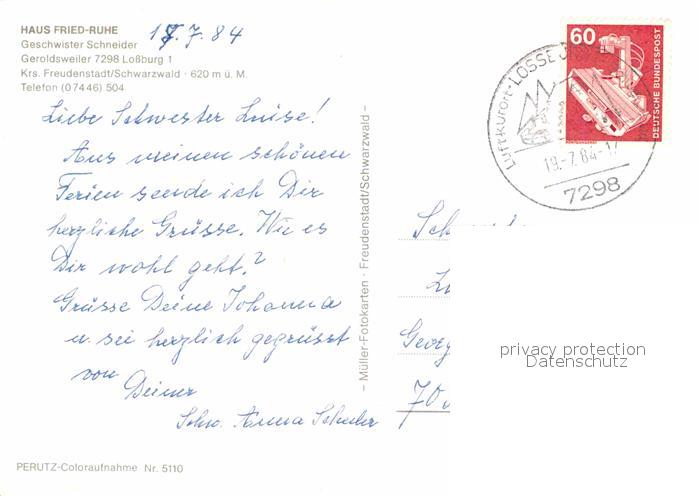 HAUS FRIED-RUHE
Geschwister Schneider
Geroldsweiler 7298 Loßburg 1
Krs. Freudenstadt/Schwarzwald · 620 m ü. M.
Telefon (07446) 504
7.84
Liebe Schwester Luise!
Aus meinen schönen
Ferien sende ich Dir
herzliche Grüsse. Wie es
Dir wohl geht?
Grüsse Deine Johanna
u. sei herzlich gegrüsst
von Deiner
Schw. Anna
– Müller-Fotokarten · Freudenstadt/Schwarzwald –
60
DEUTSCHE BUNDESPOST
Luftkurort · LOSSB
19.-7.84-1
7298
Sch
Georg
70
privacy protection
Datenschutz
PERUTZ-Coloraufnahme Nr. 5110